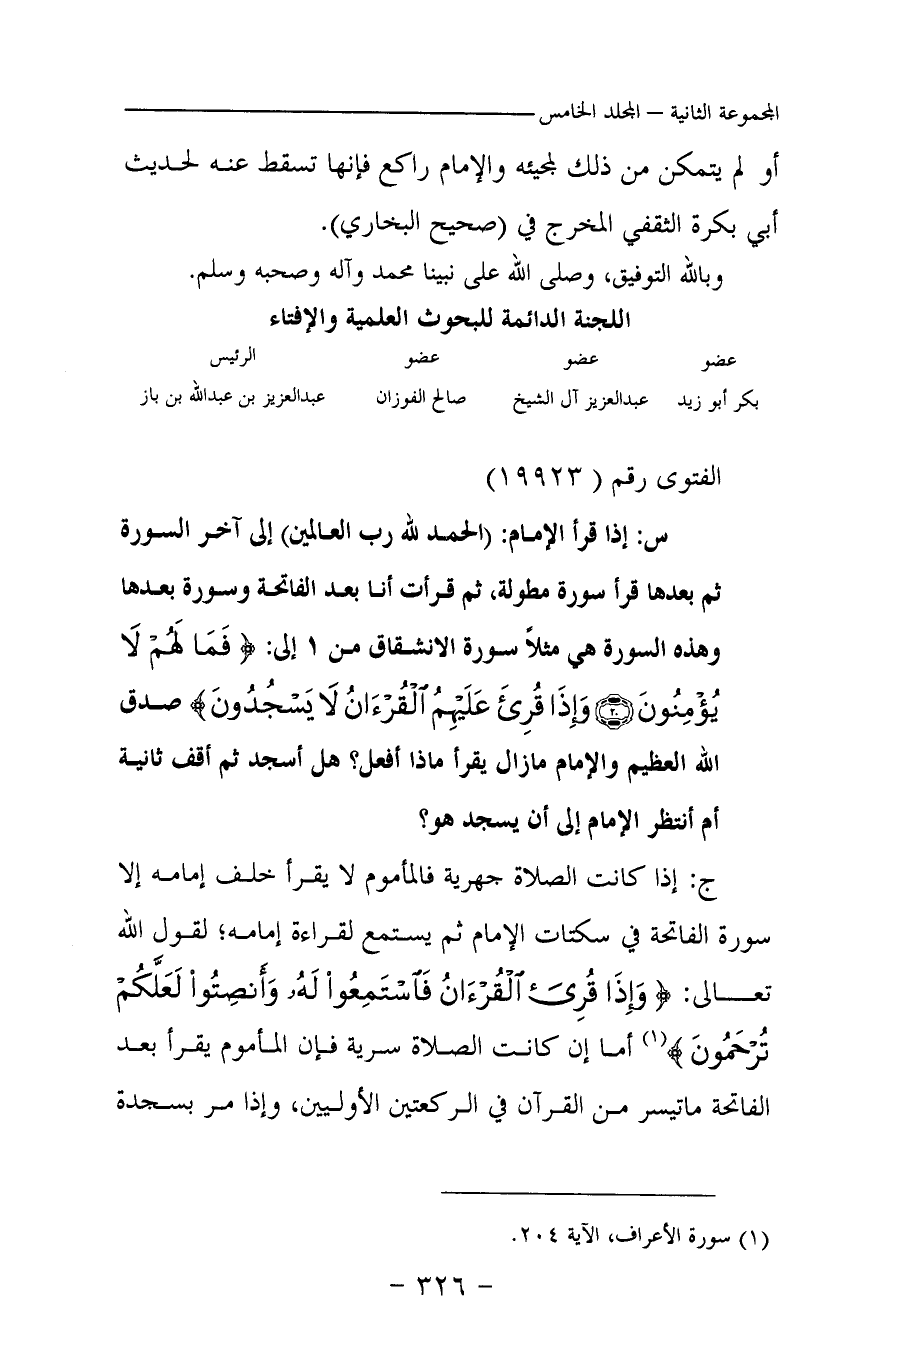 المجموعة الثانية – المجلد الخامس
أو لم يتمكن من ذلك لمجيئه والإمام راكع فإنها تسقط عنه لحديث
أبي بكرة الثقفي المخرج في (صحيح البخاري).
وبالله التوفيق، وصلى الله على نبينا محمد وآله وصحبه وسلم.
اللجنة الدائمة للبحوث العلمية والإفتاء
عضو عضو عضو الرئيس
بكر أبو زيد عبدالعزيز آل الشيخ صالح الفوزان عبدالعزيز بن عبدالله بن باز
الفتوى رقم ( ١٩٩٢٣)
س: إذا قرأ الإمام: (الحمد لله رب العالمين) إلى آخر السورة
ثم بعدها قرأ سورة مطولة، ثم قرأت أنا بعد الفاتحة وسورة بعدها
وهذه السورة هي مثلاً سورة الانشقاق من ١ إلى: ﴿ فَمَا لَهُمْ لَا
يُؤْمِنُونَ ۝٢٠ وَإِذَا قُرِئَ عَلَيْهِمُ ٱلْقُرْءَانُ لَا يَسْجُدُونَ﴾ صدق
الله العظيم والإمام مازال يقرأ ماذا أفعل؟ هل أسجد ثم أقف ثانية
أم أنتظر الإمام إلى أن يسجد هو؟
ج: إذا كانت الصلاة جهرية فالمأموم لا يقرأ خلف إمامه إلا
سورة الفاتحة في سكتات الإمام ثم يستمع لقراءة إمامه؛ لقول الله
تعالى: ﴿ وَإِذَا قُرِئَ ٱلْقُرْءَانُ فَٱسْتَمِعُوا۟ لَهُۥ وَأَنصِتُوا۟ لَعَلَّكُمْ
تُرْحَمُونَ ﴾(١) أما إن كانت الصلاة سرية فإن المأموم يقرأ بعد
الفاتحة ماتيسر من القرآن في الركعتين الأوليين، وإذا مر بسجدة
(١) سورة الأعراف، الآية ٢٠٤.
- ٣٢٦ -